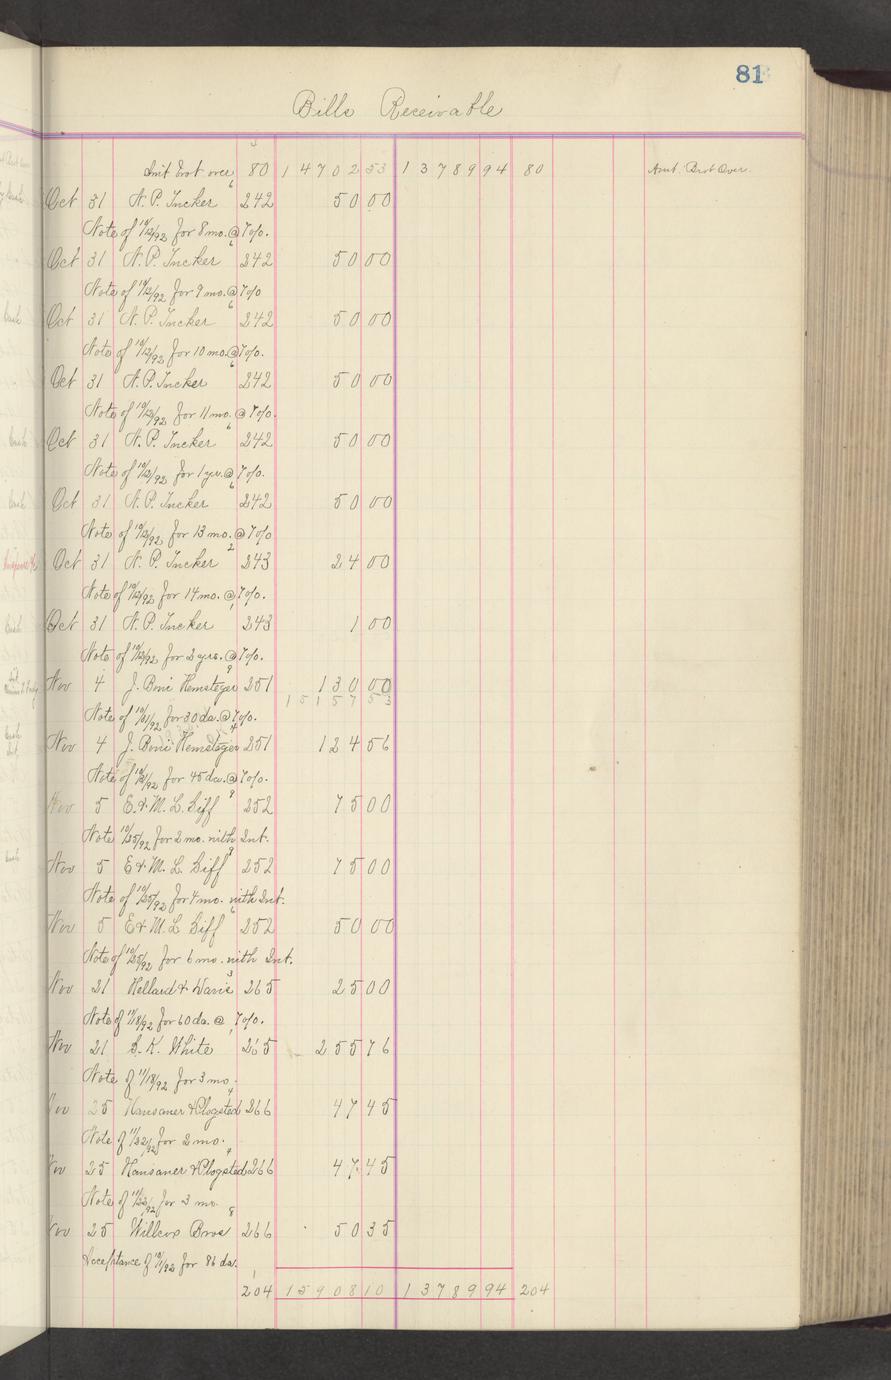 81
Bills Receivable
Amt Brot over 80 14702 53 13789 94 80 Amt. Brot Over.
Oct 31 N. P. Tucker 242 50 00
Note of 10/12/92 for 8 mo. @ 7 o/o.
Oct 31 N. P. Tucker 242 50 00
Note of 10/12/92 for 9 mo. @ 7 o/o
Oct 31 N. P. Tucker 242 50 00
Note of 10/12/92 for 10 mo. @ 7 o/o.
Oct 31 N. P. Tucker 242 50 00
Note of 10/12/92 for 11 mo. @ 7 o/o.
Oct 31 N. P. Tucker 242 50 00
Note of 10/12/92 for 1 yr. @ 7 o/o.
Oct 31 N. P. Tucker 242 50 00
Note of 10/12/92 for 13 mo. @ 7 o/o
Oct 31 N. P. Tucker 243 24 00
Note of 10/12/92 for 14 mo. @ 7 o/o.
Oct 31 N. P. Tucker 243 1 00
Note of 10/12/92 for 2 yrs. @ 7 o/o.
Nov 4 J. Boni Hemsteger 251 130 00
15157 53
Note of 10/21/92 for 30 da. @ 7 o/o.
Nov 4 J. Boni Hemsteger 251 124 56
Note of for 45 da. @ 7 o/o.
Nov 5 E. & M. L. Giff 252 75 00
Note 10/25/92 for 2 mo. with Int.
Nov 5 E & M. L. Giff 252 75 00
Note of 10/25/92 for 4 mo. with Int.
Nov 5 E & M. L Giff 252 50 00
Note of 10/25/92 for 6 mo. with Int.
Nov 21 Hellard & Davis 265 25 00
Note of 11/18/92 for 60 da. @ 7 o/o.
Nov 21 S. K. White 265 255 76
Note of 11/18/92 for 3 mo.
Nov 25 Hansaner & Plogsted 266 47 45
Note of 11/22/92 for 2 mo.
Nov 25 Hansaner & Plogsted 266 47 45
Note of 11/22/92 for 3 mo.
Nov 25 Willcox Bros 266 50 35
Acceptance of for 86 da.
204 15908 10 13789 94 204